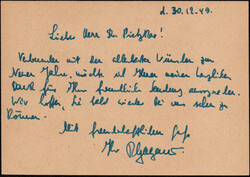 d. 30.12.49.
Lieber Herr Dr. Rietzler!
Verbunden mit den allerbesten Wünschen zum
Neuen Jahre, möchte ich Ihnen meinen herzlichen
Dank für Ihre freundliche Sendung aussprechen.
Wir hoffen, Sie bald wieder bei uns sehen zu
können.
Mit freundschaftlichem Gruß
Ihr